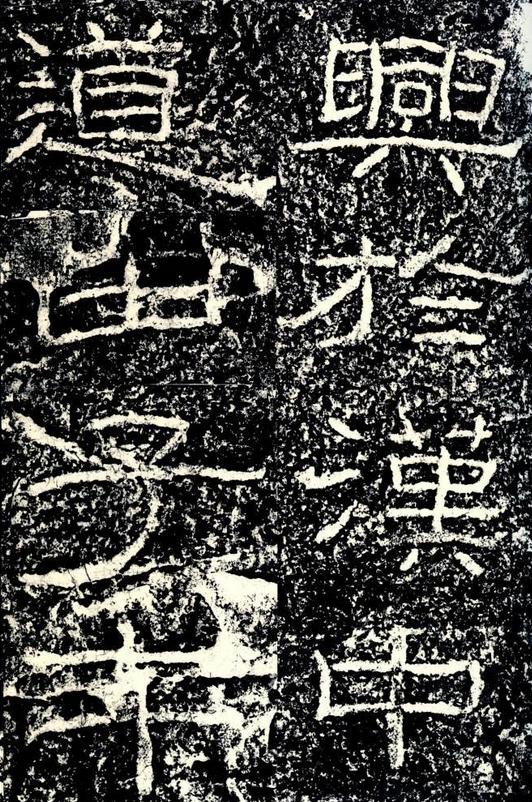 興於漢中
道由子午